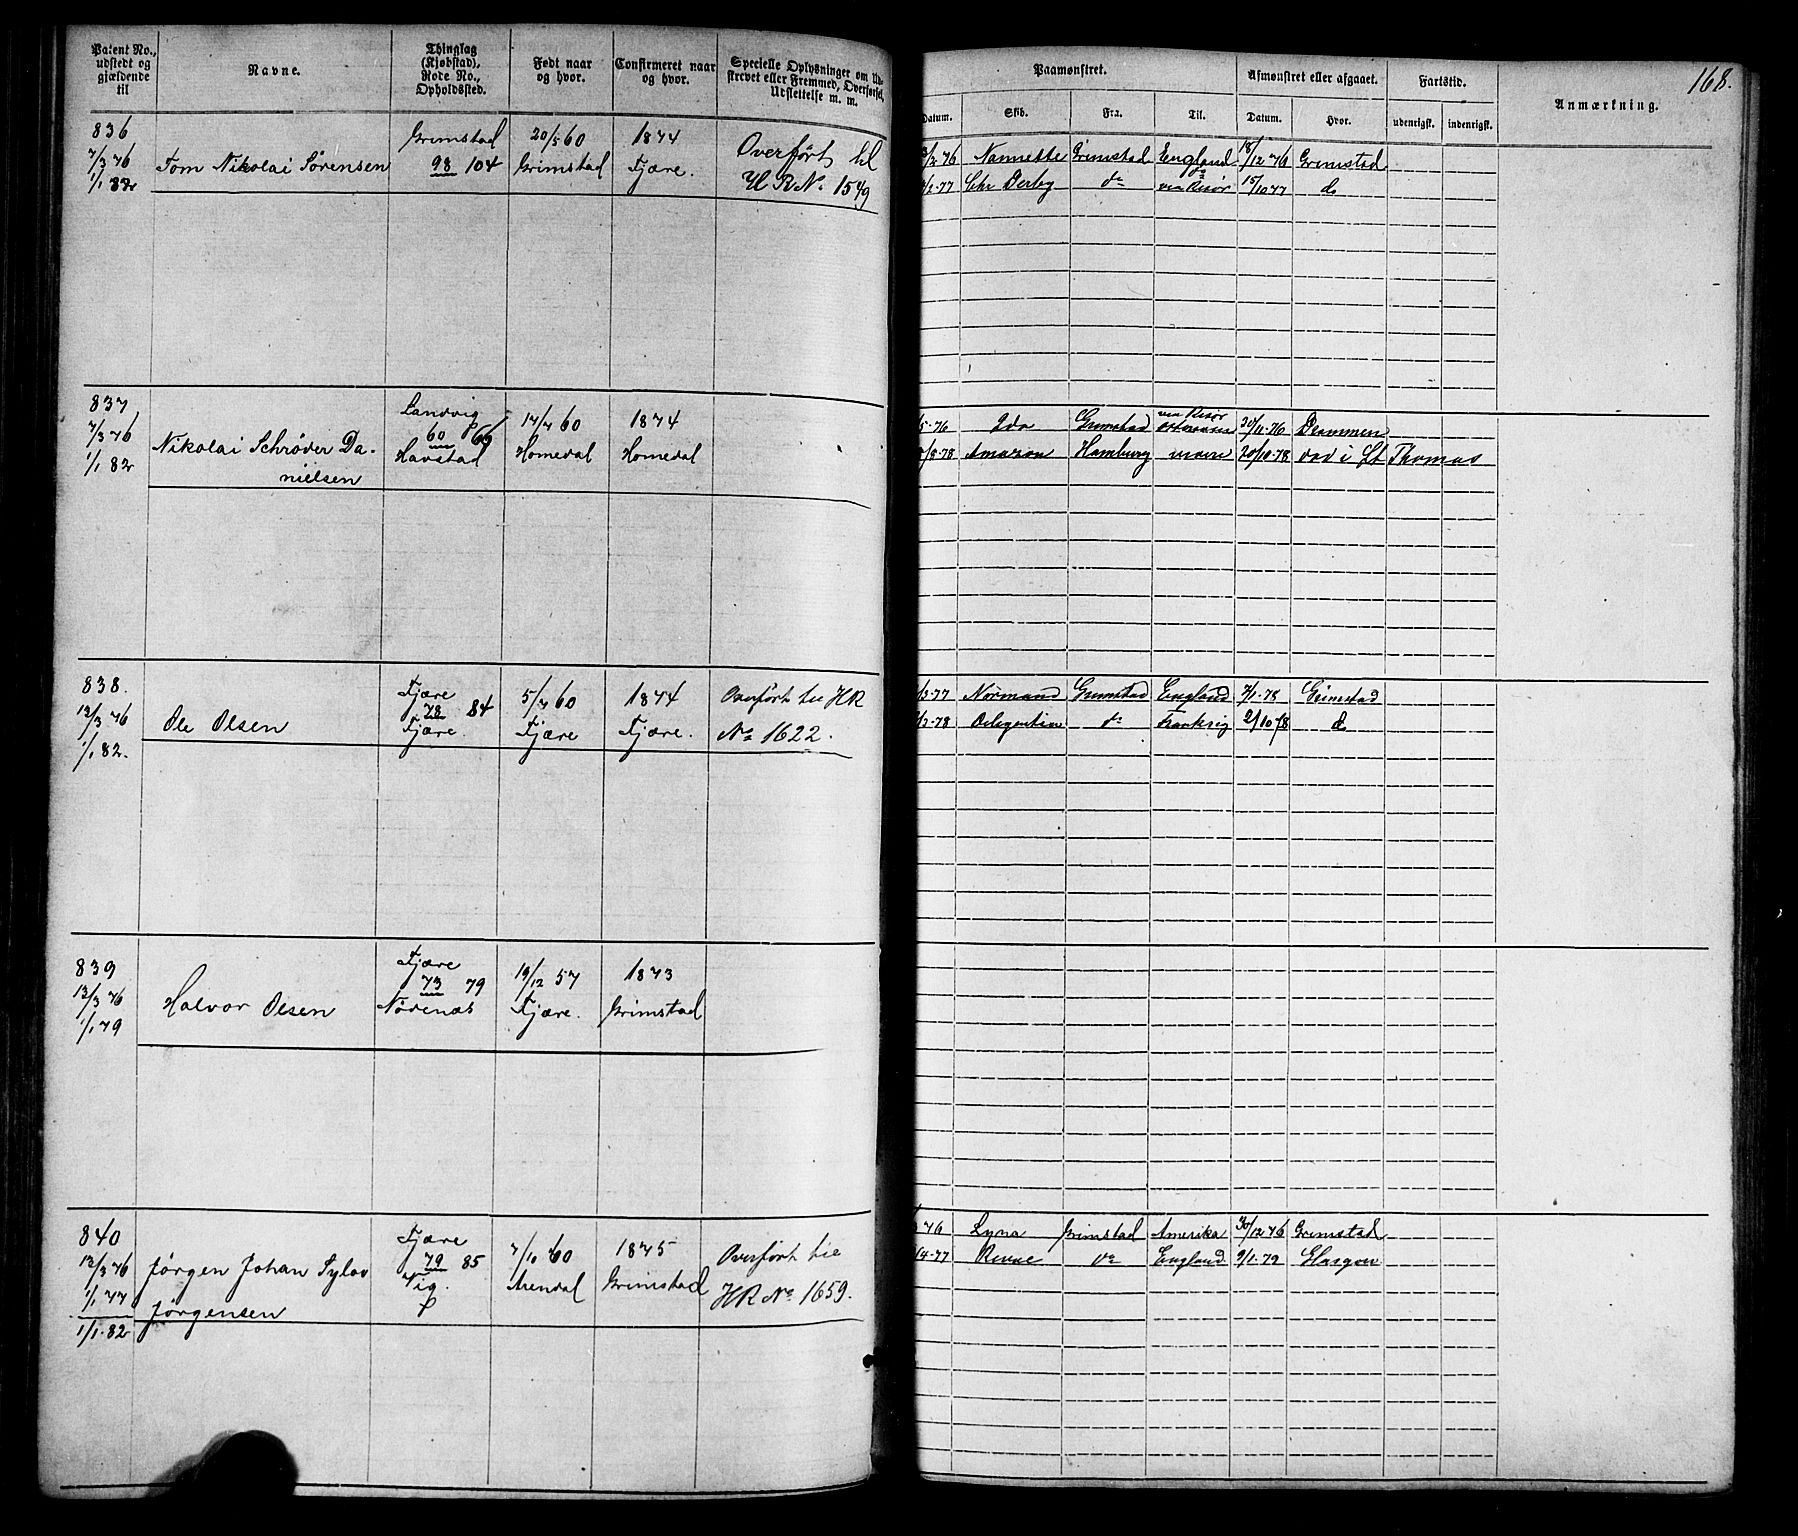 168.
Patent No., udstedt og gjældende til
Navne.
Thinglag (Kjøbstad), Rode No., Opholdssted.
Født naar og hvor.
Confirmeret naar og hvor.
Specielle Oplysninger om Ud-
skrevet eller Fremmed, Overførsel,
Udslettelse m. m.
Paamønstret.
Afmønstret eller afgaaet.
Fartstid.
Anmærkning.
Datum. Skib. Fra. Til. Datum. Hvor. udenrigsk. indenrigsk.
836
7/3 76
1/1 82
Tom Nikolai Sörensen
Grimstad
98 104
20/5 60
Grimstad
1874
Fjære.
Overført til
H R No. 1549
3/3 76 Nannette Grimstad England 18/12 76 Grimstad
1-77 Chr Derby do do via Risør 15/10 77 do
837
7/3 76
1/1 82
Nikolai Schrøder Da-
nielsen
Landvig
60 66
Havstad
17/7 60
Homedal
1874
Homedal
5-76 Ida Grimstad via Risør 20/11-76 Drammen
/8-78 Amazon Hamburg 20/10-78 død i St Thomas
838.
13/3 76
1/1 82.
Ole Olsen
Fjære
78 84
Fjære.
5/7 60
Fjære
1874
Fjære.
Overført til HR
No 1622.
/3-77 Normand Grimstad England 7/1-78 Grimstad
-78 Deligentia do Frankrig 2/10 78 do
839
13/3 76
1/1 79
Halvor Olsen
Fjære
73 79
Nörenæs
19/12 57
Fjære.
1873
Grimstad
840
13/3 76
1/1 77
1/1.82
Jørgen Johan Sylov
Jørgensen
Fjære
79 85
Vig.
7/10 60
Arendal
1875
Grimstad
Overført til
HR No 1659.
76 Lyna Grimstad Amerika 30/12 76 Grimstad
/4-77 do England 9/1-79 Glasgow